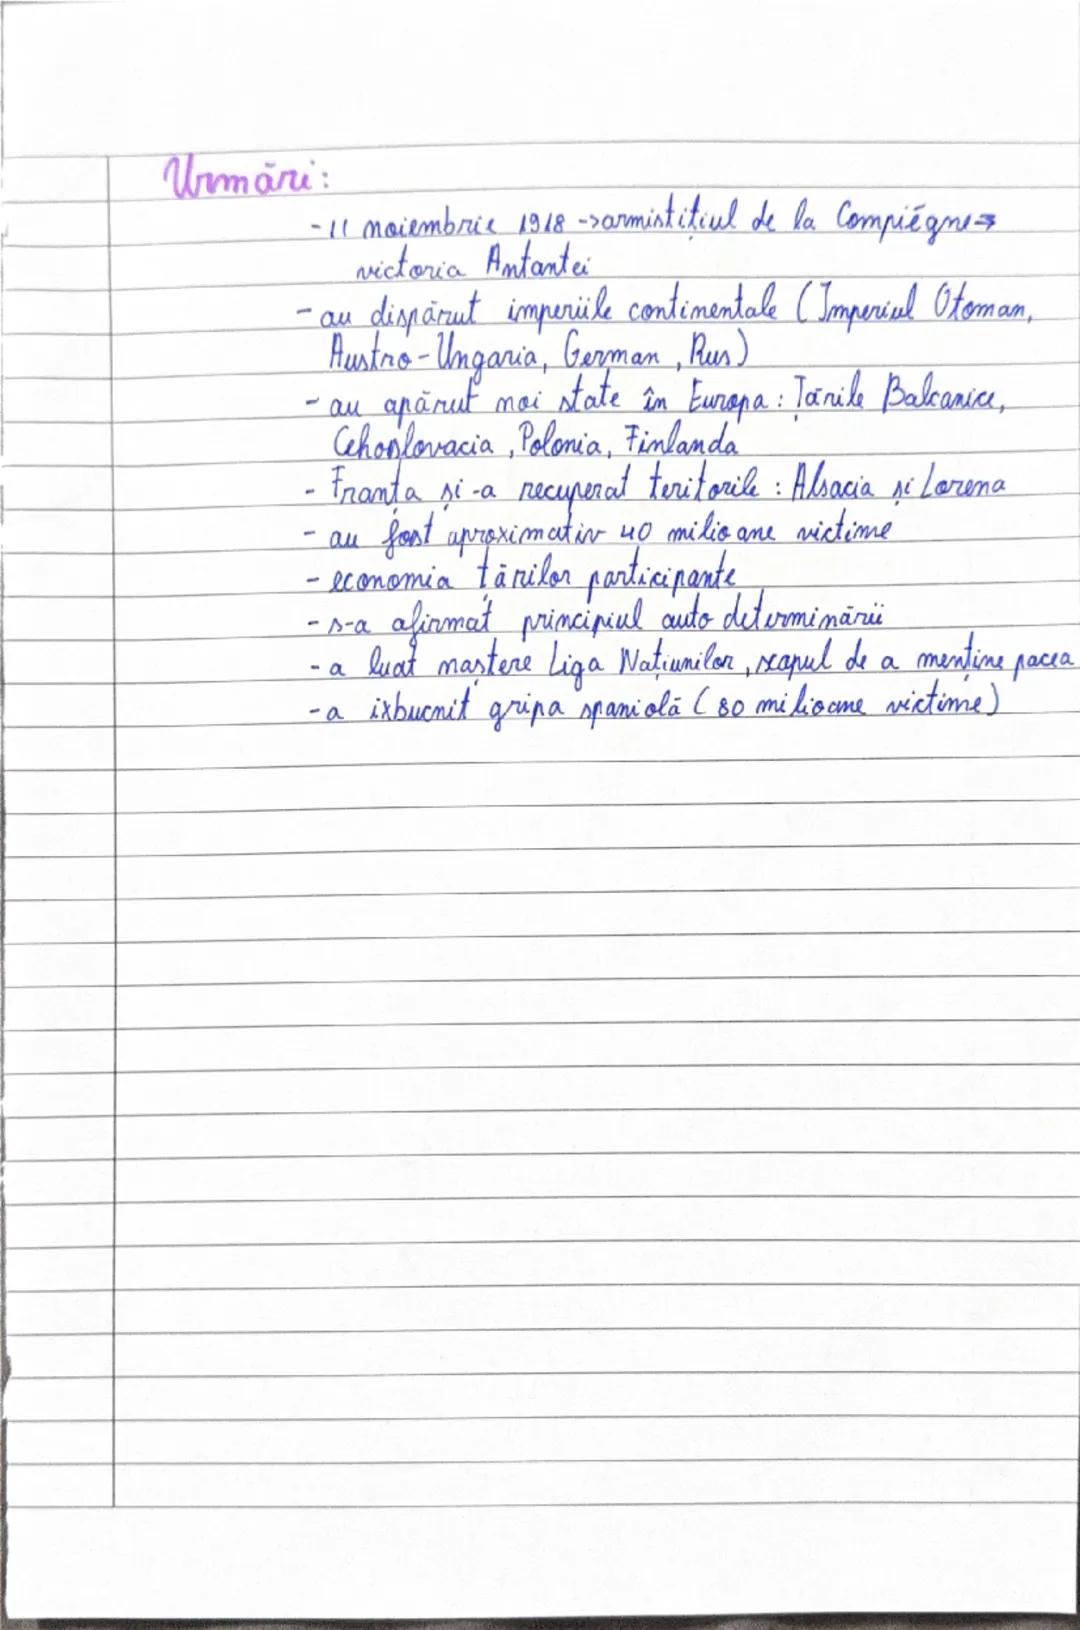 Urmări:
-11 noiembrie 1918 ->armistițiul de la Compiégne=>
victoria Antantei
- au dispărut imperiile continentale (Imperiul Otoman,
Austro-Ungaria, German, Rus)
- au apărut noi state în Europa: Țările Balcanice,
Cehoslovacia, Polonia, Finlanda
- Franța și-a recuperat teritorile: Alsacia și Lorena
- au fost aproximativ 40 milioane victime
- economia țărilor participante
- s-a afirmat principiul auto determinării
- a luat naștere Liga Națiunilor, scopul de a menține pacea
- a ixbucnit gripa spaniolă (80 milioane victime)